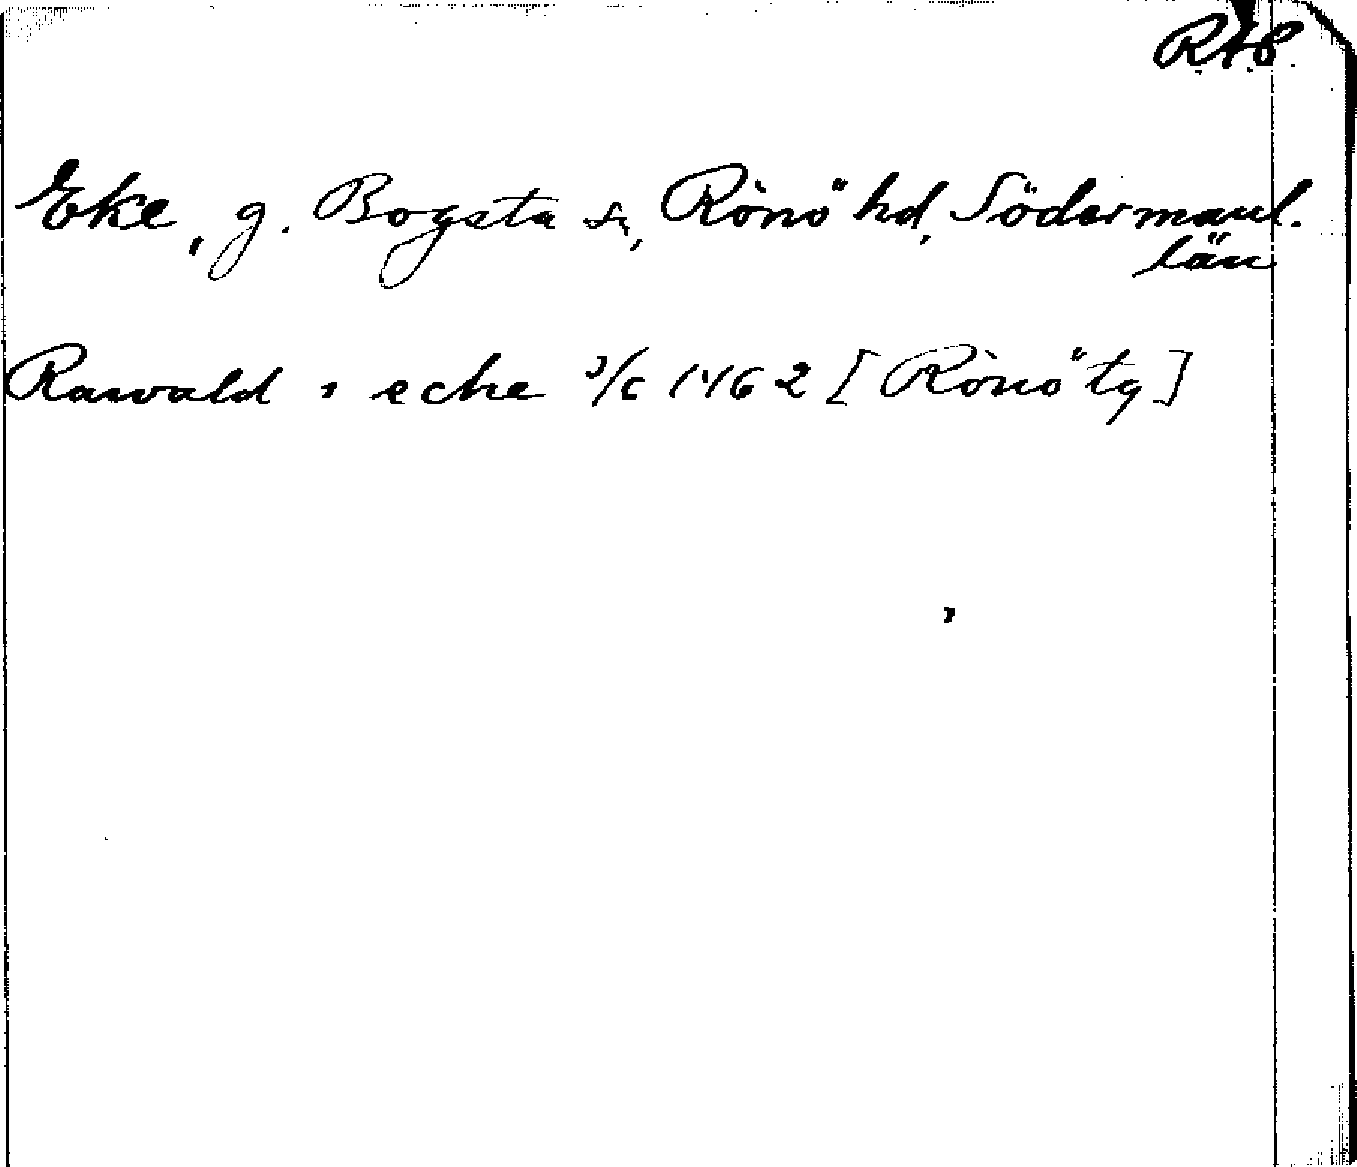 RAP
Eke, g. Bogsta sn, Rönö hd, Södermanl.
län
Rawald i ecke 3/6 1462 [Rönö tg]